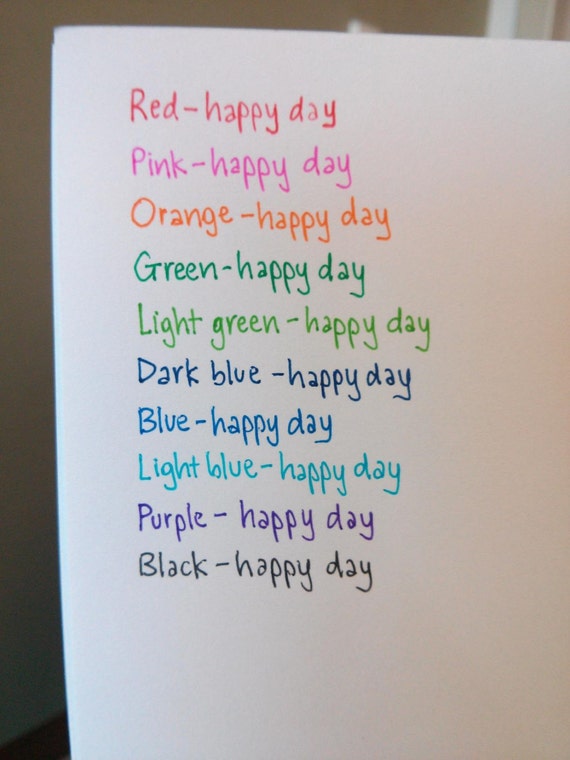 Red-happy day
Pink-happy day
Orange-happy day
Green-happy day
Light green-happy day
Dark blue-happy day
Blue-happy day
Light blue-happy day
Purple- happy day
Black-happy day